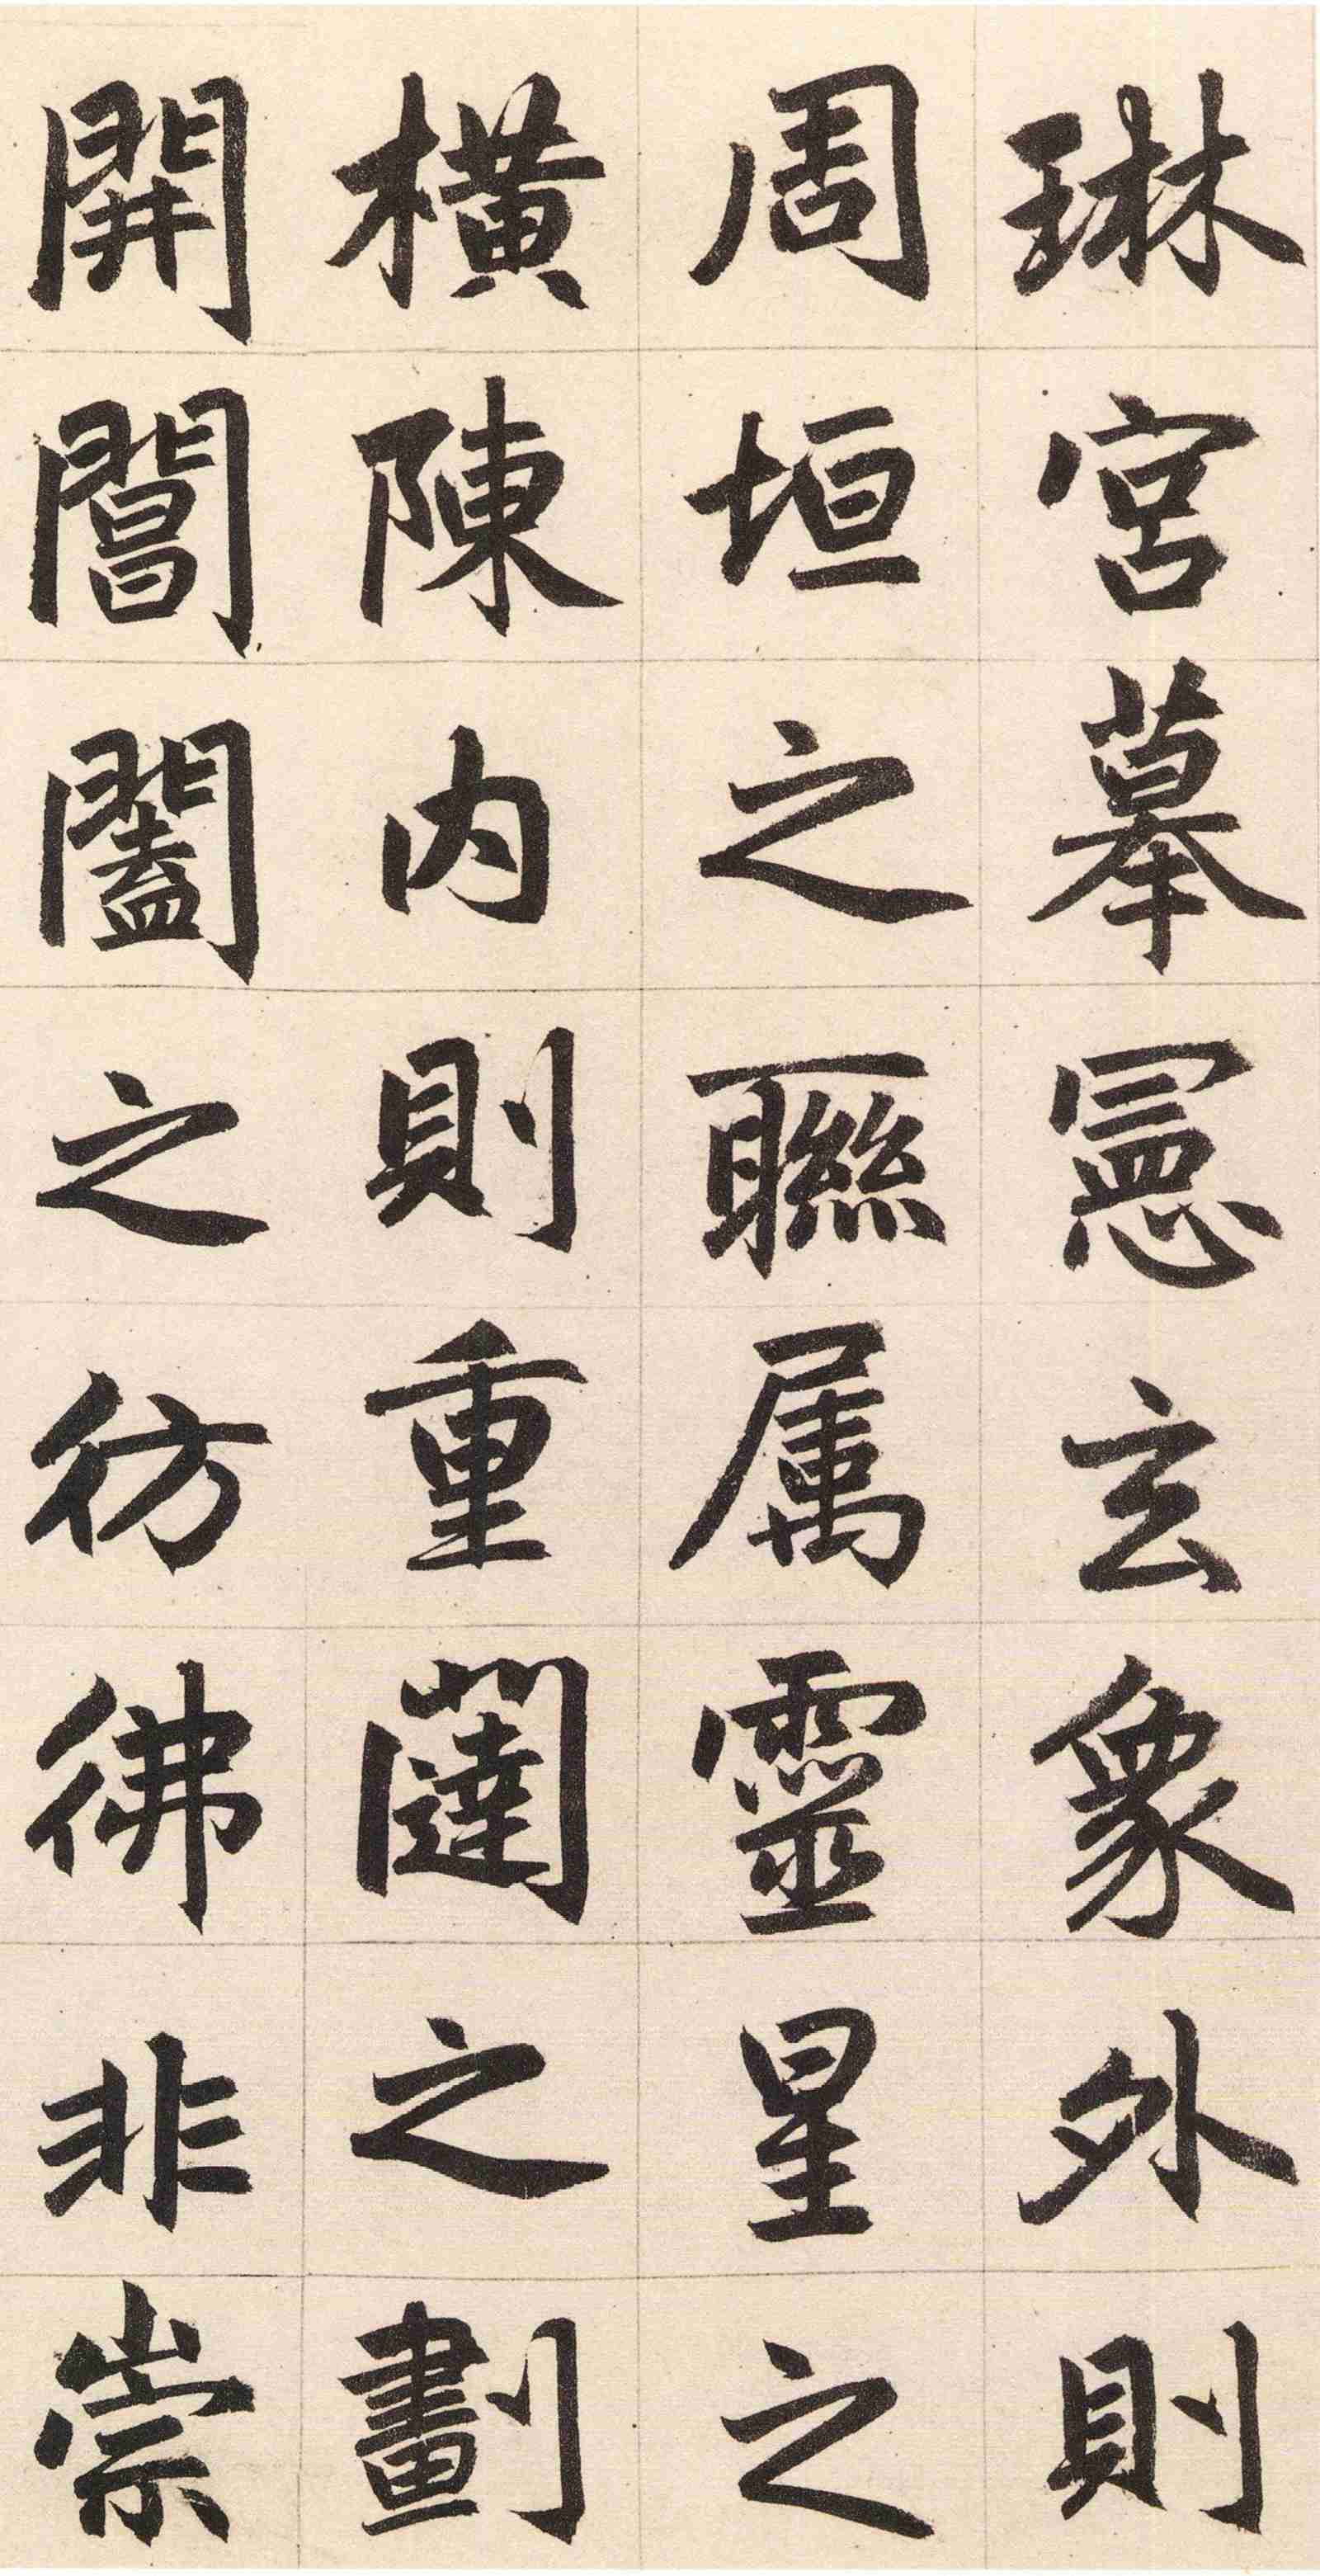 琳宮摹憲玄象外則
周垣之聯属靈星之
橫陳內則重闥之劃
開閶闔之彷彿非崇